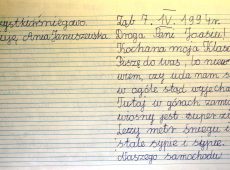 ystkiośniegowo
uje, Ania Januszewska
Ząb 7. IV. 1994r.
Droga Pani Joasiu!
Kochana moja Klaso
Piszę do was, bo nie
wiem, czy uda nam s
w ogóle stąd wyjecha
Tutaj w górach zami
wiosny jest super zi
Leży metr śniegu i
stale sypie i sypie.
naszego samochodu